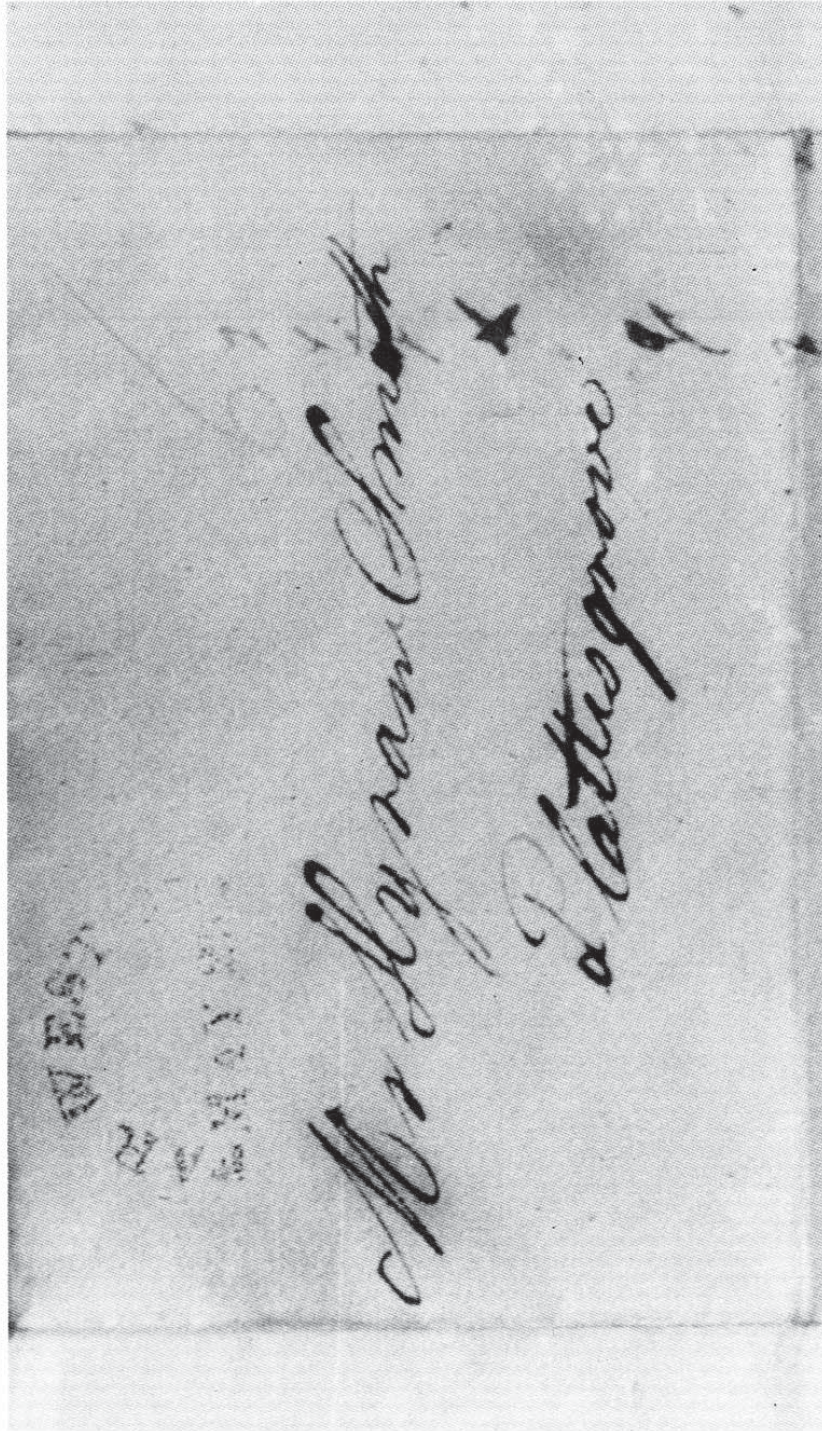 WEST
MAY
Mr Hyram Smith
Plattsgrove